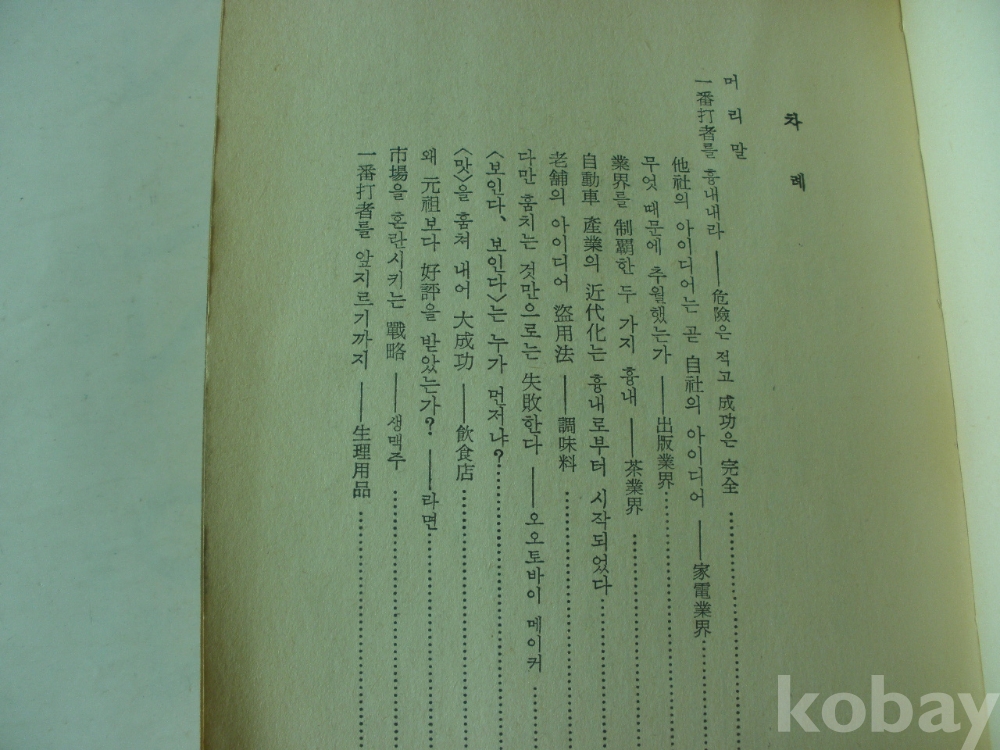 차례
머리말
一番打者를 흉내내라——危險은 적고 成功은 完全
他社의 아이디어는 곧 自社의 아이디어——家電業界
무엇 때문에 추월했는가——出版業界
業界를 制覇한 두 가지 흉내——茶業界
自動車 產業의 近代化는 흉내로부터 시작되었다
老舗의 아이디어 盜用法——調味料
다만 훔치는 것만으로는 失敗한다——오오토바이 메이커
〈보인다、보인다〉는 누가 먼저냐?
〈맛〉을 훔쳐 내어 大成功——飮食店
왜 元祖보다 好評을 받았는가?——라면
市場을 혼란시키는 戰略——생맥주
一番打者를 앞지르기까지——生理用品
kobay